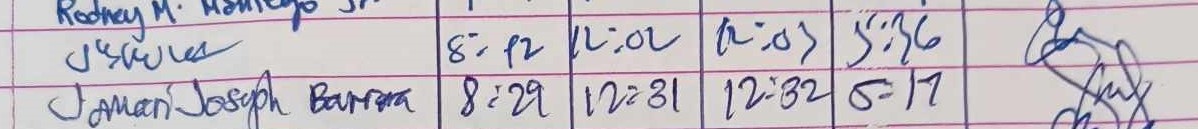 Rodney M.
8:12 12:02 12:03 5:36
Jomari Joseph Barrera 8:29 12:31 12:32 5:17